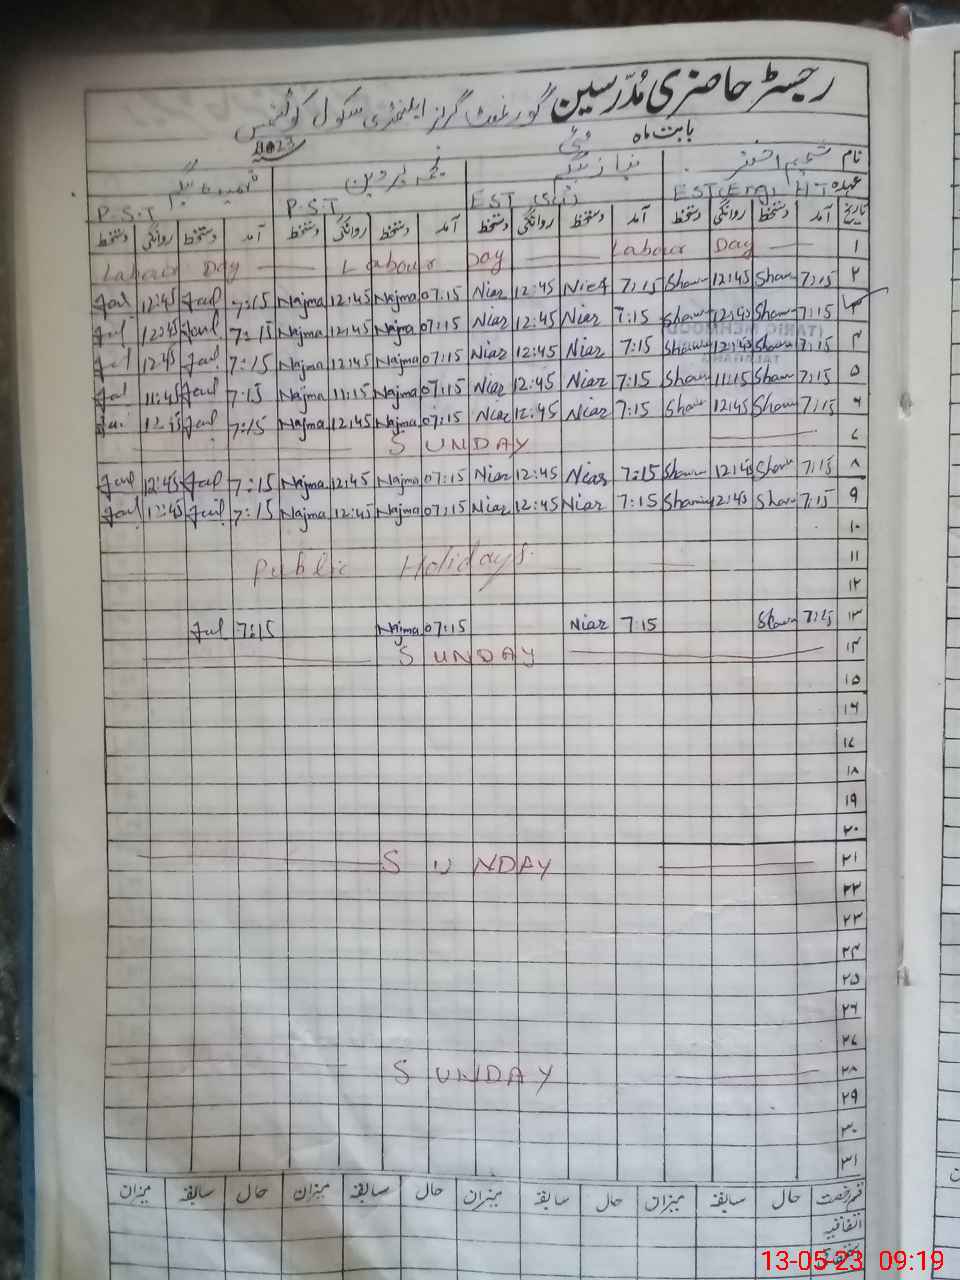 رجسٹر حاضری مُدرسین گورنمنٹ گرلز ایلیمنٹری سکول
بابت ماہ مئی 2023
نام شمیم اختر نیاز بیگم نجمہ پروین بیگم
عہدہ EST(Eng) HT EST P.S.T P.S.T
تاریخ آمد دستخط روانگی دستخط آمد دستخط روانگی دستخط آمد دستخط روانگی دستخط آمد دستخط روانگی دستخط
Labour Day Labour Day Labour Day ۱
12:45 7:15 Najma 12:45 Najma 07:15 Niaz 12:45 7:15 Sham 12:45 Sham 7:15 ۲
12:45 7:15 Najma 12:45 Najma 07:15 Niaz 12:45 Niaz 7:15 Sham 12:45 Sham 7:15 ۳
12:45 7:15 Najma 12:45 Najma 07:15 Niaz 12:45 Niaz 7:15 Sham 12:45 Sham 7:15 ۴
11:45 7:15 Najma 11:15 Najma 07:15 Niaz 12:45 Niaz 7:15 Sham 11:15 Sham 7:15 ۵
7:15 Najma 12:45 Najma 07:15 Niaz 12:45 Niaz 7:15 Sham 12:45 Sham 7:15 ۶
SUNDAY ۷
12:45 7:15 Najma 12:45 Najma 07:15 Niaz 12:45 Niaz 7:15 Sham 12:45 Sham 7:15 ۸
12:45 7:15 Najma 12:45 Najma 07:15 Niaz 12:45 Niaz 7:15 Sham 12:45 Sham 7:15 ۹
۱۰
Public Holidays. ۱۱
۱۲
7:15 Najma 07:15 Niaz 7:15 Sham 7:15 ۱۳
SUNDAY ۱۴
۱۵
۱۶
۱۷
۱۸
۱۹
۲۰
SUNDAY ۲۱
۲۲
۲۳
۲۴
۲۵
۲۶
۲۷
SUNDAY ۲۸
۲۹
۳۰
۳۱
قسم رخصت حال سابقہ میزان حال سابقہ میزان حال سابقہ میزان حال سابقہ میزان
اتفاقیہ
13-05-23 09:19